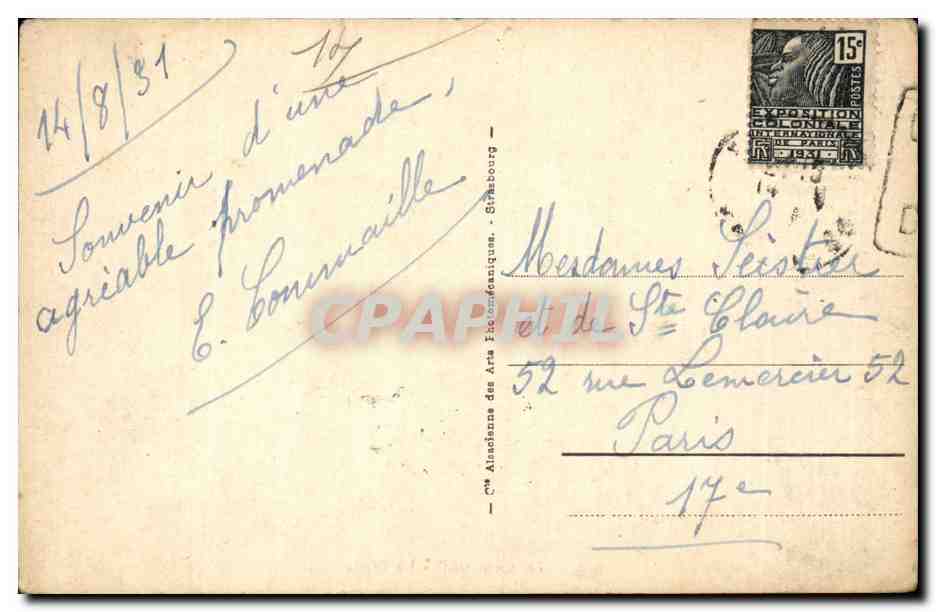 14/8/31
Souvenir d'une
agréable promenade,
E.
15c
POSTES
EXPOSITION
COLONIALE
INTERNATIONALE
DE PARIS
1931
— Cie Alsacienne des Arts Photomécaniques. - Strasbourg —
Mesdames
et de Ste Claire
52 rue Lemercier 52
Paris
17e
CPAPHIL